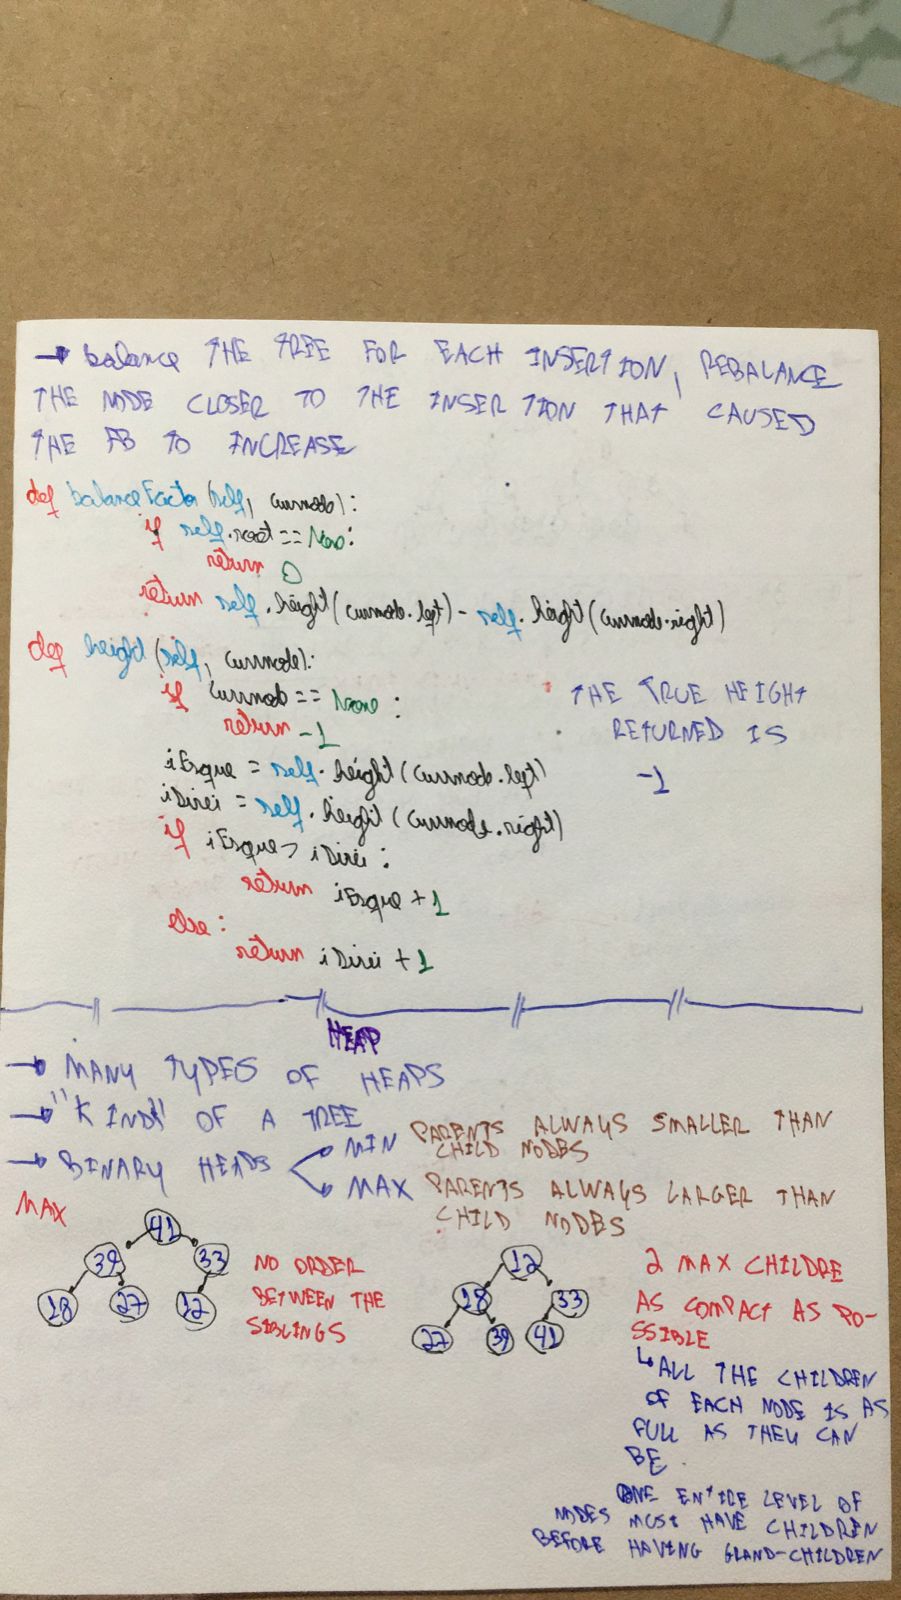 → balance THE TREE FOR EACH INSERTION, REBALANCE
THE NODE CLOSER TO THE INSERTION THAT CAUSED
THE FB TO INCREASE
def balanceFactor(self, curnode):
if self.root == None:
return 0
return self.height(curnode.left) - self.height(curnode.right)
def height(self, curnode):
if curnode == None:
return -1
iEsque = self.height(curnode.left)
iDirei = self.height(curnode.right)
if iEsque > iDirei:
return iEsque + 1
else:
return iDirei + 1
THE TRUE HEIGHT
RETURNED IS
-1
HEAP
→ MANY TYPES OF HEAPS
→ "KINDA" OF A TREE
→ BINARY HEAPS
MIN PARENTS ALWAYS SMALLER THAN
CHILD NODES
MAX PARENTS ALWAYS LARGER THAN
CHILD NODES
MAX
41
39 33
18 27 12
NO ORDER
BETWEEN THE
SIBLINGS
12
18 33
27 39 41
2 MAX CHILDRE
AS COMPACT AS PO-
SSIBLE
↳ ALL THE CHILDREN
OF EACH NODE IS AS
FULL AS THEY CAN
BE.
ONE ENTIRE LEVEL OF
NODES MUST HAVE CHILDREN
BEFORE HAVING GLAND-CHILDREN